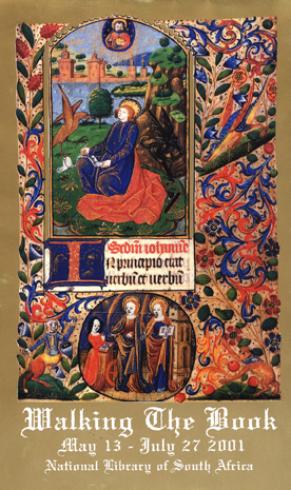 Scd'm iohanne
N principio erat
verbu et verbu
Walking The Book
May 13 - July 27 2001
National Library of South Africa